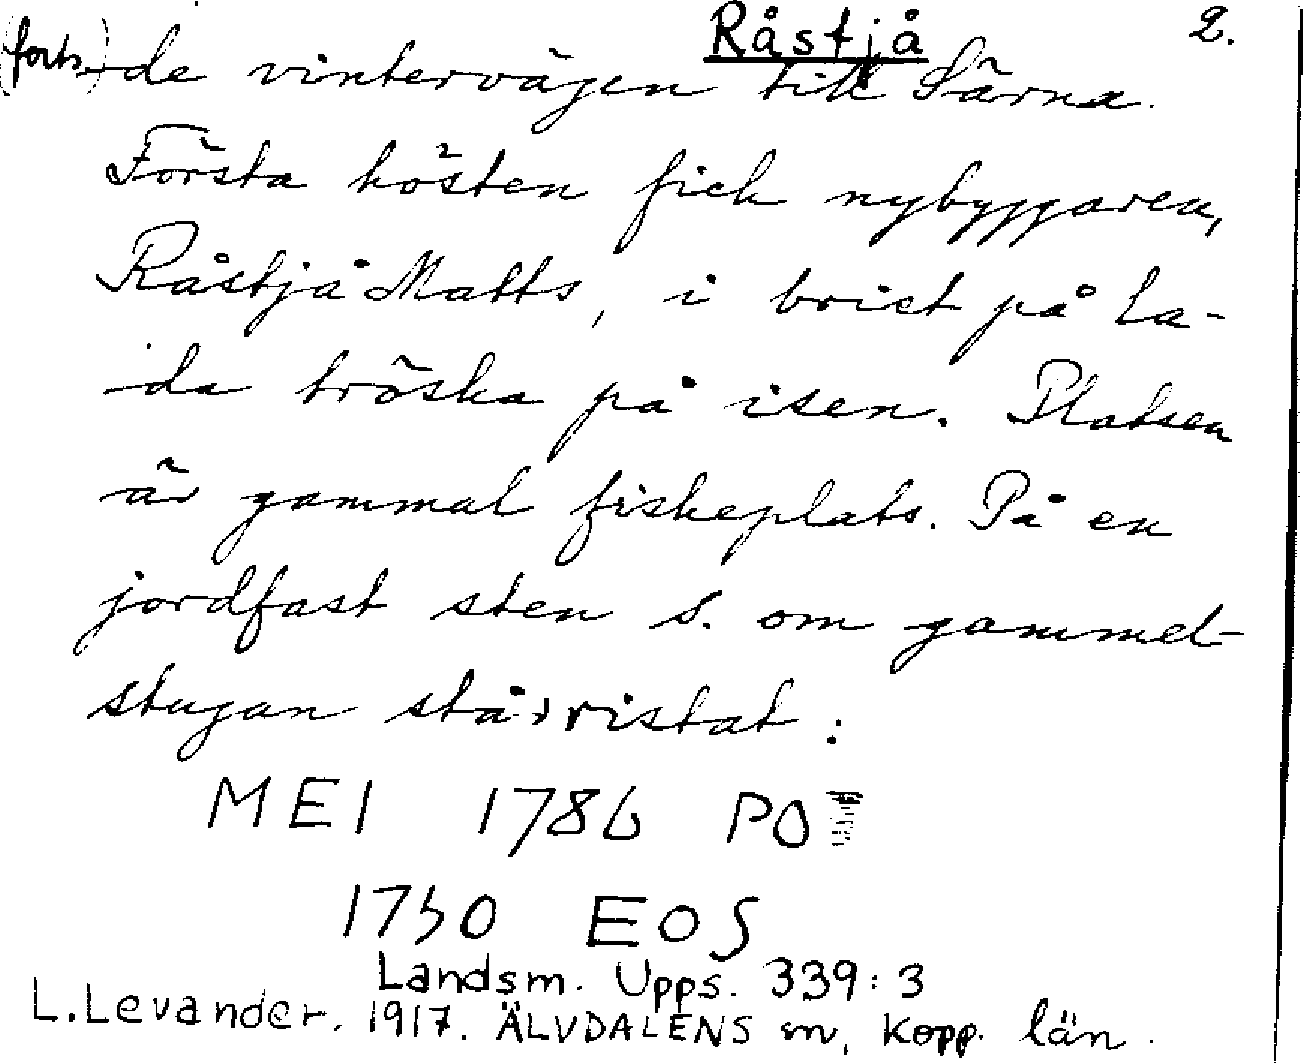 Råstjå 2.
(forts.) de vintervägen till Särna.
Första hösten fick nybyggaren,
Råstjå Matts, i brist på la-
da tröska på isen. Platsen
är gammal fiskeplats. På en
jordfast sten s. om gammel-
stugan står ristat:
MEI 1786 PO
1730 EOS
Landsm. Upps. 339:3
L. Levander. 1917. ÄLVDALENS sn, Kopp. län.